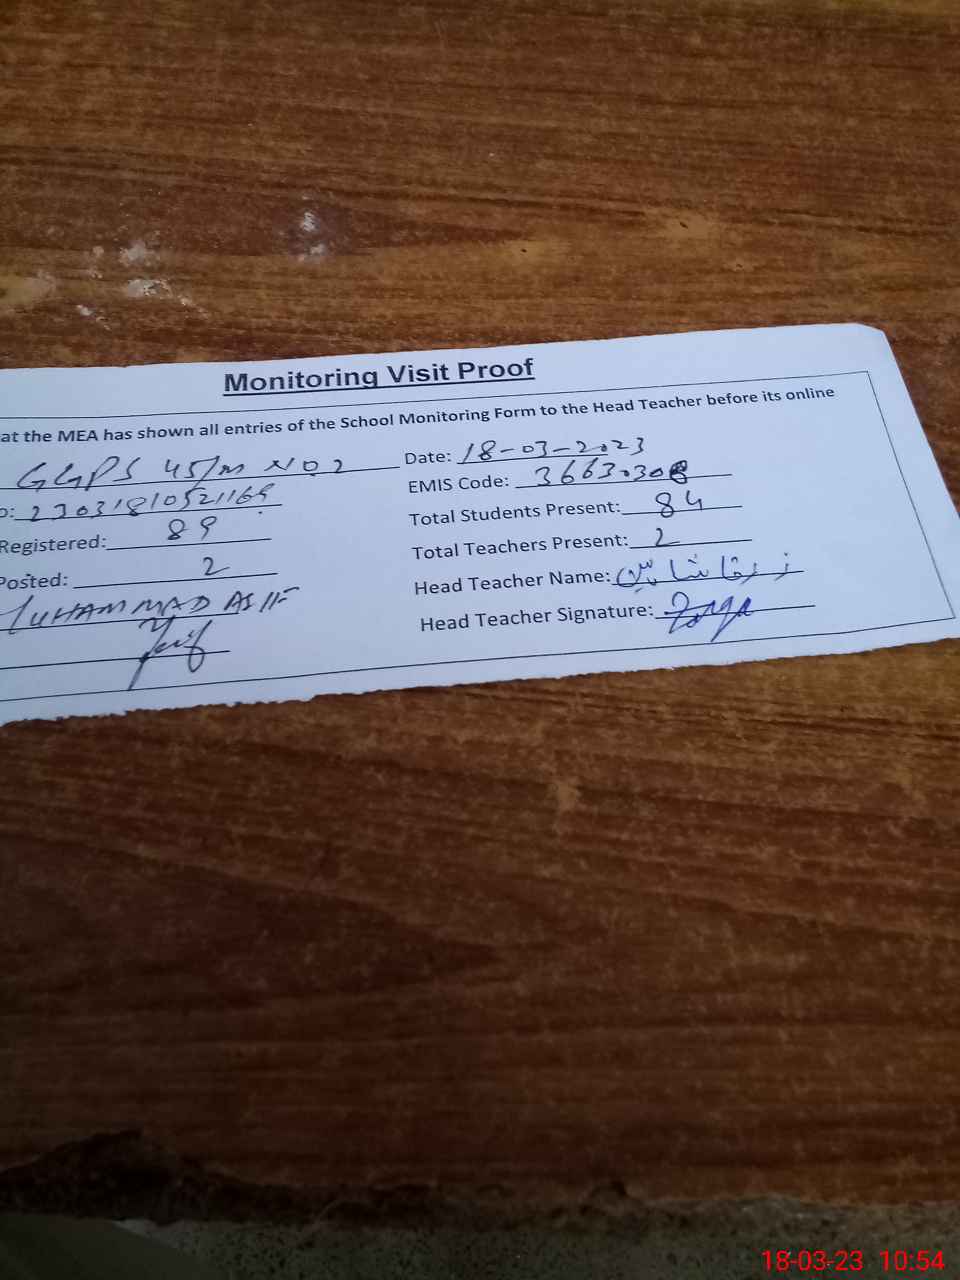 Monitoring Visit Proof
at the MEA has shown all entries of the School Monitoring Form to the Head Teacher before its online
GGPS 45/m NO 2 Date: 18-03-2023
EMIS Code: 3663030
Registered: 89 Total Students Present: 84
Posted: 2 Total Teachers Present: 2
MUHAMMAD ASIF Head Teacher Name:
Head Teacher Signature:
18-03-23 10:54